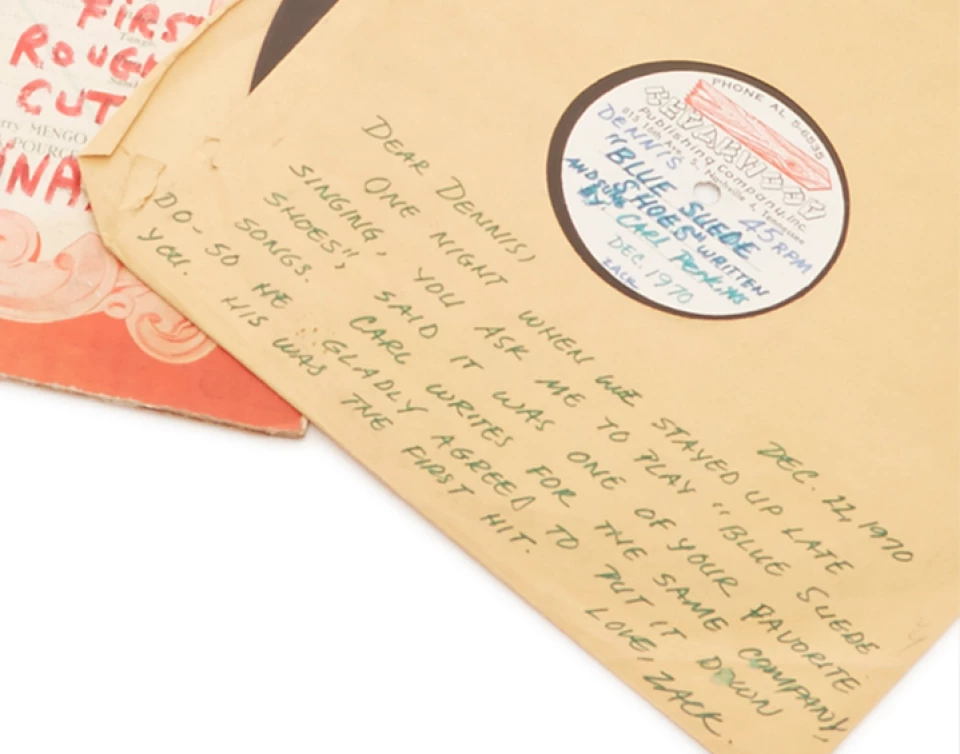 FIRS
ROUGH
CUT
rry MENGO
POURCE
NA
PHONE AL 5-6535
CEDARWOOD
Publishing Company, Inc.
815 16th Ave. S., Nashville 2, Tennessee
DENNIS
45 RPM
"BLUE SUEDE
SHOES" WRITTEN
AND SUNG
BY CARL PERKINS
DEC. 1970
ZACK
DEC. 22, 1970
DEAR DENNIS,
ONE NIGHT WHEN WE STAYED UP LATE
SINGING, YOU ASK ME TO PLAY "BLUE SUEDE
SHOES", SAID IT WAS ONE OF YOUR FAVORITE
SONGS. CARL WRITES FOR THE SAME COMPANY
DO - SO HE GLADLY AGREED TO PUT IT DOWN
YOU. HIS WAS THE FIRST HIT.
LOVE, ZACK.